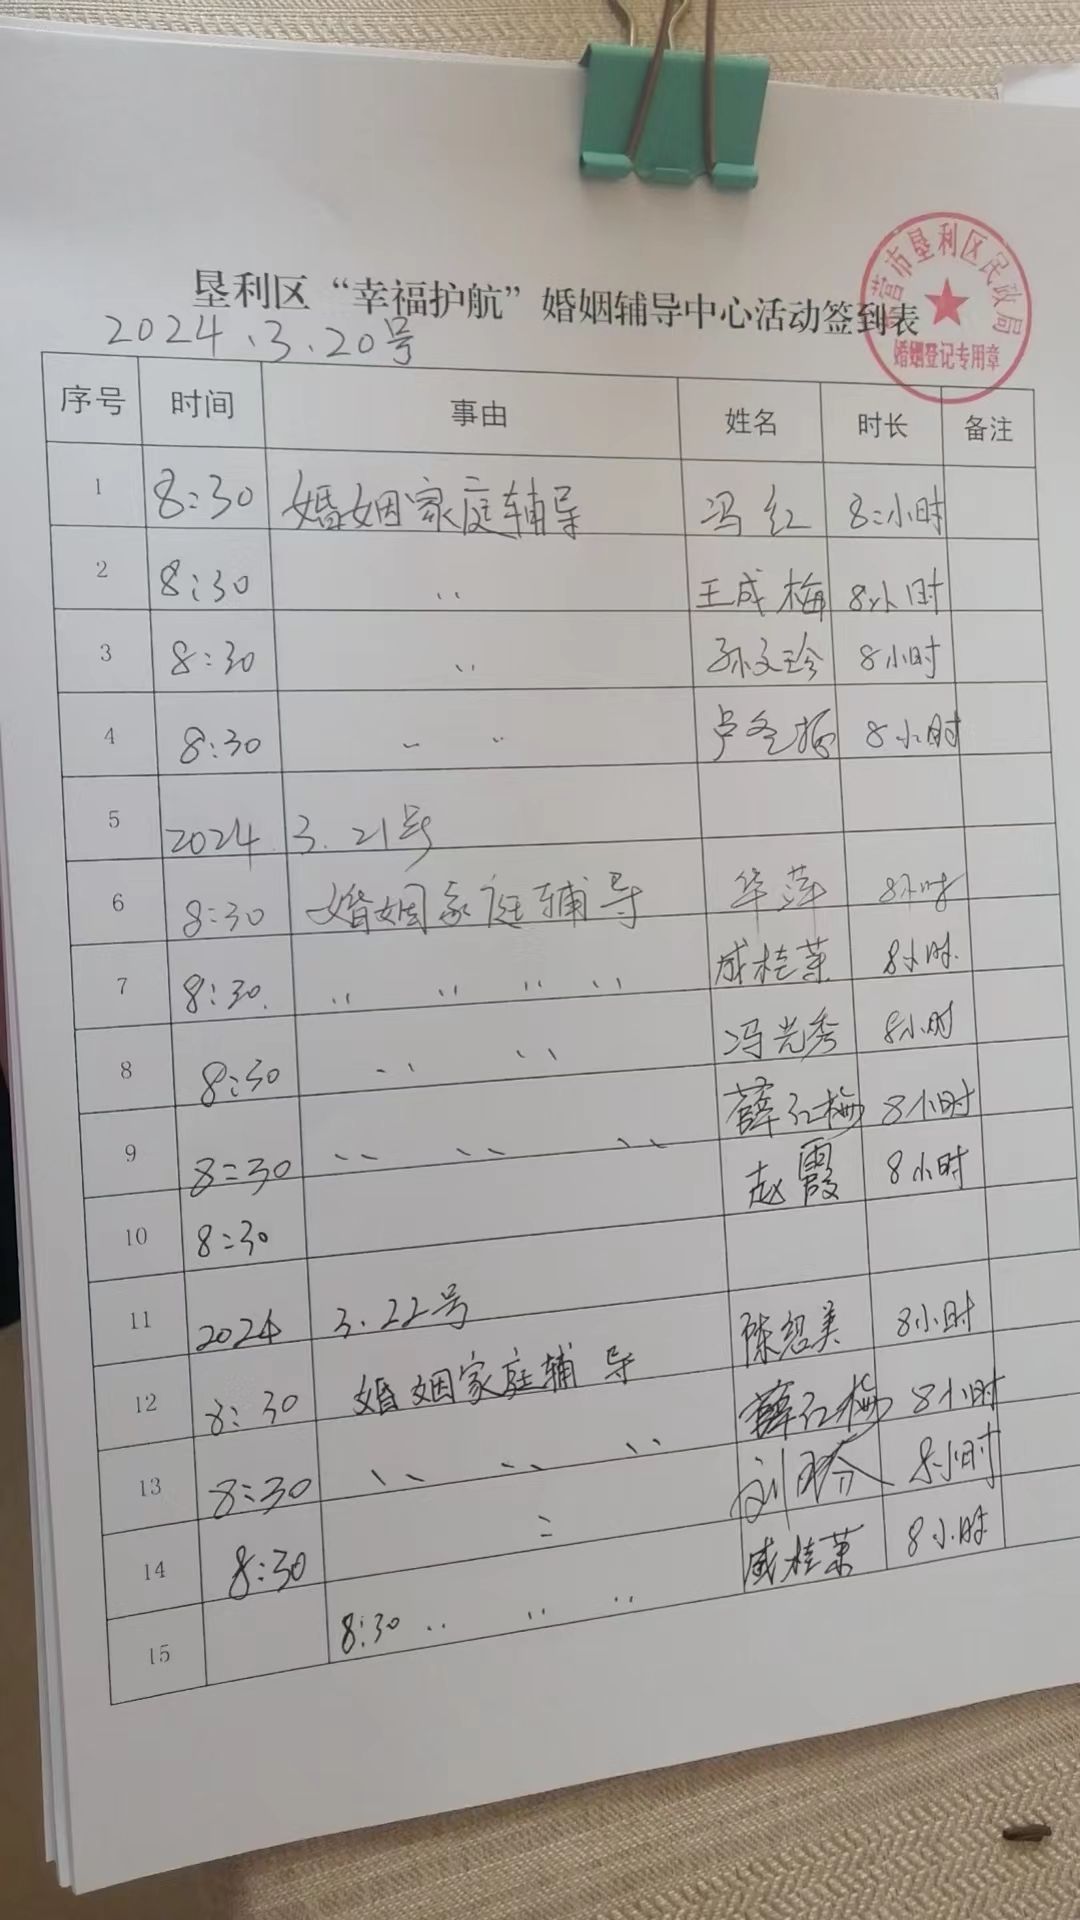 垦利区“幸福护航”婚姻辅导中心活动签到表
东营市垦利区民政局
婚姻登记专用章
2024.3.20号
序号 时间 事由 姓名 时长 备注
1 8:30 婚姻家庭辅导 冯红 8:小时
2 8:30 〃 王成梅 8小时
3 8:30 〃 孙文玲 8小时
4 8:30 〃 〃 卢冬梅 8小时
5 2024. 3.21号
6 8:30 婚姻家庭辅导 华萍 8小时
7 8:30. 〃 〃 〃 〃 戚桂荣 8小时.
8 8:30 〃 〃 冯光秀 8小时
9 8:30 〃 〃 〃 薛红梅 8小时
10 8:30 赵霞 8小时
11 2024 3.22号
12 8:30 婚姻家庭辅导 陈绍美 8小时
13 8:30 〃 〃 〃 薛红梅 8小时
14 8:30 〃 刘 8小时
15 8:30 〃 〃 〃 戚桂荣 8小时